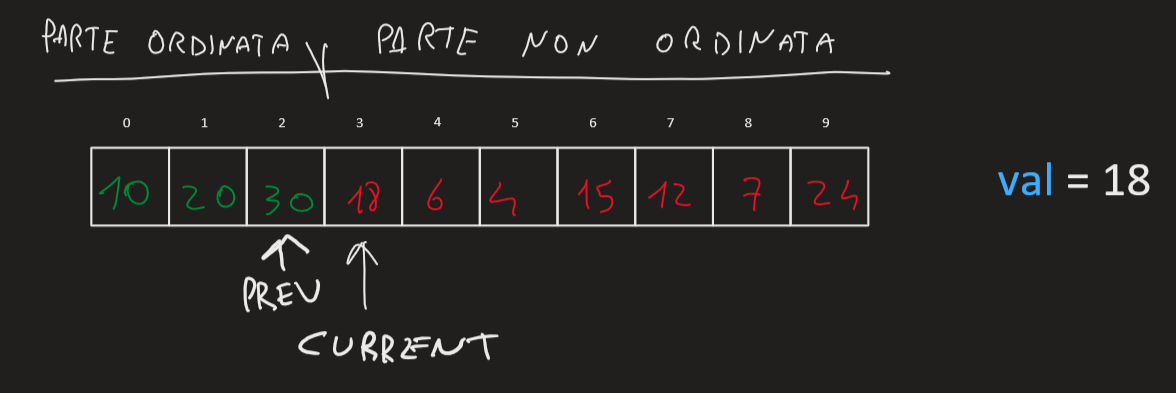 PARTE ORDINATA PARTE NON ORDINATA
0 1 2 3 4 5 6 7 8 9
10 20 30 18 6 4 15 12 7 24
val = 18
PREV
CURRENT